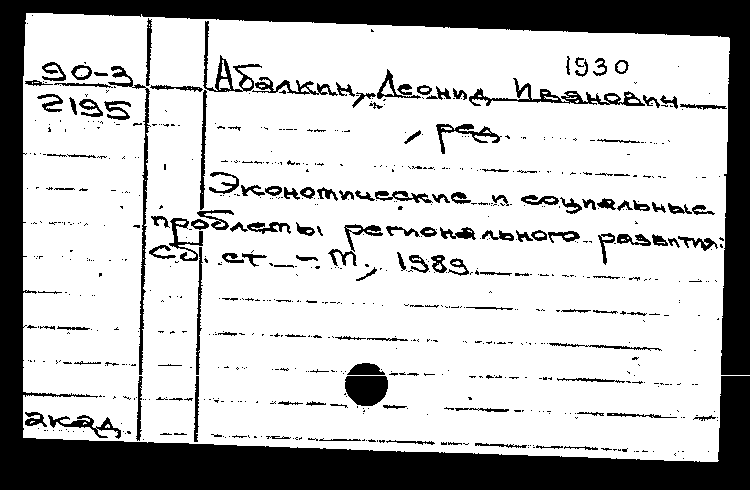 1930
90-3 Абалкин, Леонид Иванович
2195
, ред.
Экономические и социальные
проблемы регионального развития:
Сб. ст. – М., 1989
акад.